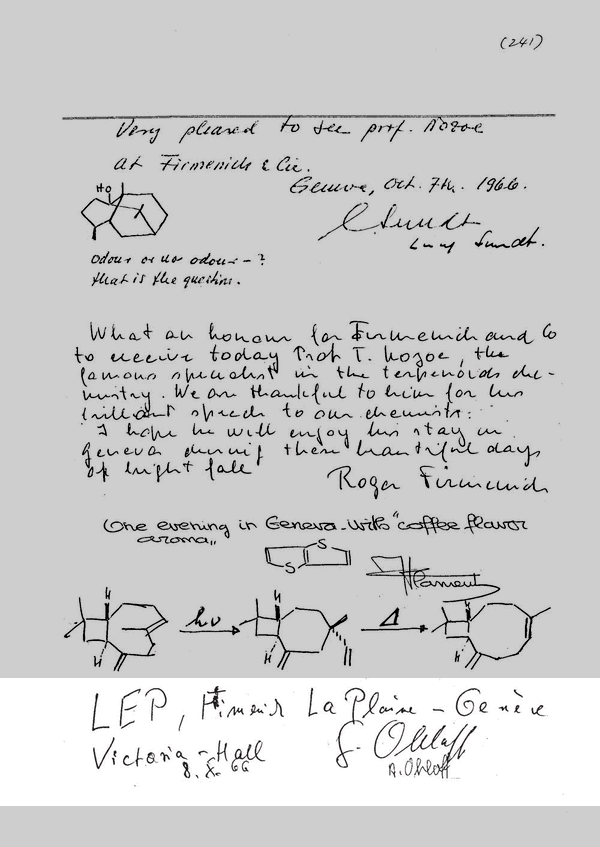 (241)
Very pleased to see prof. Nozoe
at Firmenich & Cie.
Geneve, Oct. 7th. 1966.
HO
Sundt
Sundt.
Odour or no odour - ?
that is the question.
What an honour for Firmenich and Co
to receive today Prof T. Nozoe, the
famous specialist in the terpenoids che-
mistry. We are thankful to him for his
brilliant speech to our chemists.
I hope he will enjoy his stay in
Geneva during these beautiful days
of bright fall
Roger Firmenich
One evening in Geneva with "coffee flavor
aroma"
S
S
I. Flament
H
H
hν
H
H
Δ
H
H
LEP, Firmenich La Plaine - Genève
Victoria-Hall
8. X. 66
G. Ohloff
A. Ohloff